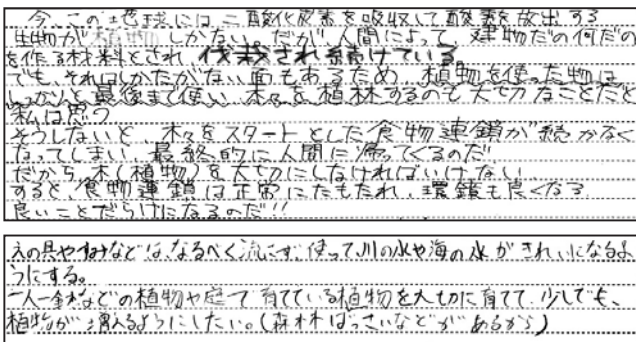 今、この地球には、二酸化炭素を吸収して酸素を放出する
生物が植物しかない。だが、人間によって、建物だの何だの
を作る材料とされ、伐栽され続けている。
でも、それはしかたがない面もあるため、植物を使った物は
しっかりと最後まで使い、木々を植林するので大切なことだと
私は思う
そうしないと、木々をスタートとした食物連鎖が続かなく
なってしまい、最終的に人間に帰ってくるのだ。
だから、木(植物)を大切にしなければいけない。
すると、食物連鎖は正常にたもたれ、環鎖も良くなる
良いことだらけになるのだ!!
えの具やすみなどは、なるべく流にず、使って川の水や海の水がきれいになるよ
うにする。
一人一鉢などの植物や庭で育てている植物を大切に育てて、少しでも、
植物が増えるようにしたい。(森林ばっさいなどがあるから)